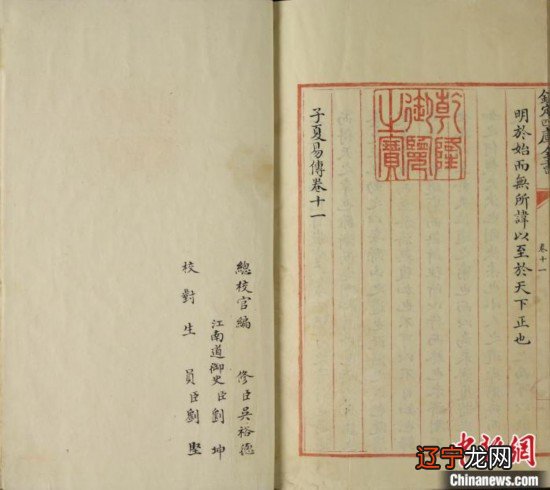 欽定四庫全書
卷十一
明於始而無所諱以至於天下正也
乾隆
御覽
之寶
子夏易傳卷十一
總校官編修臣吳裕德
江南道御史臣劉坤
校對生員臣劉堅
中新網
辽宁龙网
Chinanews.com